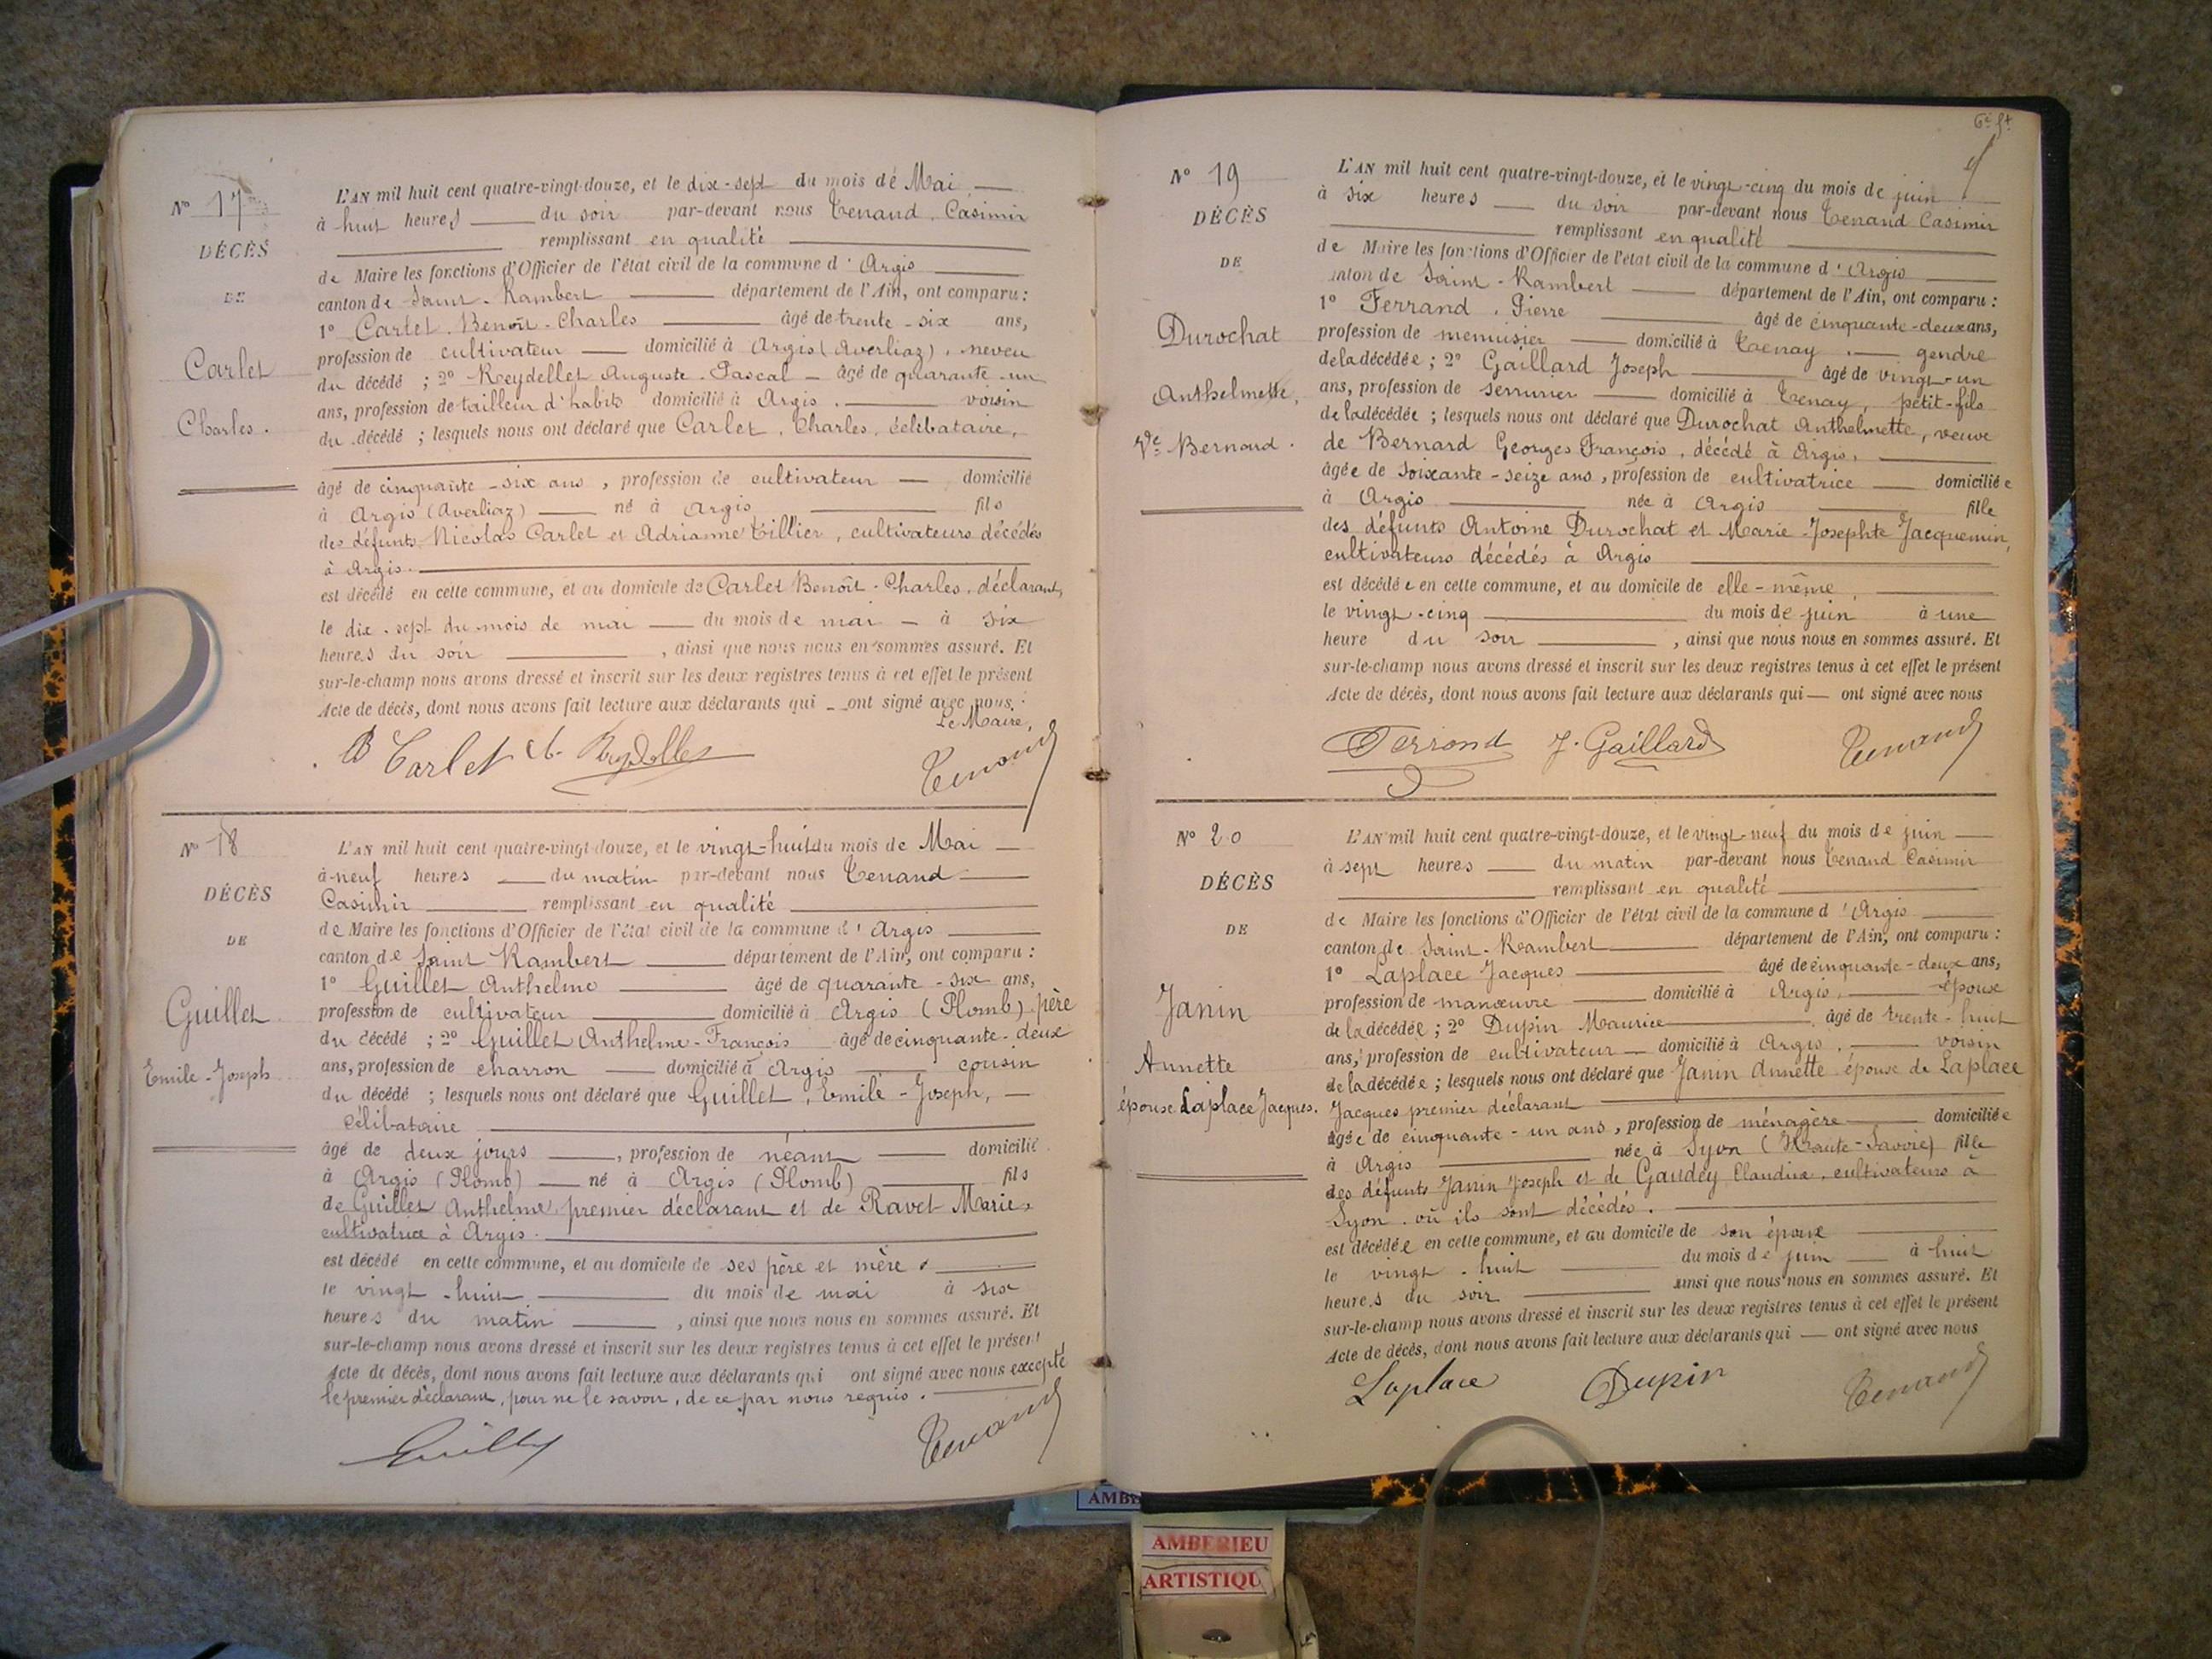 N° 17
DÉCÈS
DE
Carlet
Charles.
L'AN mil huit cent quatre-vingt-douze, et le dix-sept du mois de Mai
à huit heures du soir par-devant nous Tenand, Casimir
remplissant en qualité
de Maire les fonctions d'Officier de l'état civil de la commune d'Argis
canton de Saint-Rambert département de l'Ain, ont comparu :
1° Carlet Benoît-Charles âgé de trente-six ans,
profession de cultivateur domicilié à Argis (Averliaz), neveu
du décédé ; 2° Reydellet Auguste-Pascal âgé de quarante-un
ans, profession de tailleur d'habits domicilié à Argis. voisin
du décédé ; lesquels nous ont déclaré que Carlet, Charles, célibataire,
âgé de cinquante-six ans, profession de cultivateur domicilié
à Argis (Averliaz) né à Argis fils
des défunts Nicolas Carlet et Adrianne Tillier, cultivateurs décédés
à Argis.
est décédé en cette commune, et au domicile de Carlet Benoît-Charles, déclarant,
le dix-sept du mois de mai du mois de mai à six
heures du soir, ainsi que nous nous en sommes assuré. Et
sur-le-champ nous avons dressé et inscrit sur les deux registres tenus à cet effet le présent
Acte de décès, dont nous avons fait lecture aux déclarants qui ont signé avec nous.
Le Maire,
B Carlet A. Reydellet Tenand
N° 18
DÉCÈS
DE
Guillet
Emile-Joseph
L'AN mil huit cent quatre-vingt-douze, et le vingt-huit du mois de Mai
à neuf heures du matin par-devant nous Tenand
Casimir remplissant en qualité
de Maire les fonctions d'Officier de l'état civil de la commune d'Argis
canton de Saint Rambert département de l'Ain, ont comparu :
1° Guillet Anthelme âgé de quarante-six ans,
profession de cultivateur domicilié à Argis (Plomb) père
du décédé ; 2° Guillet Anthelme-François âgé de cinquante-deux
ans, profession de charron domicilié à Argis cousin
du décédé ; lesquels nous ont déclaré que Guillet, Emile-Joseph,
célibataire
âgé de deux jours, profession de néant domicilié
à Argis (Plomb) né à Argis (Plomb) fils
de Guillet Anthelme, premier déclarant et de Ravet Marie,
cultivatrice à Argis.
est décédé en cette commune, et au domicile de ses père et mère
le vingt-huit du mois de mai à six
heures du matin, ainsi que nous nous en sommes assuré. Et
sur-le-champ nous avons dressé et inscrit sur les deux registres tenus à cet effet le présent
Acte de décès, dont nous avons fait lecture aux déclarants qui ont signé avec nous excepté
le premier déclarant, pour ne le savoir, de ce par nous requis.
Guillet Tenand
N° 19
DÉCÈS
DE
Durochat
Anthelmette,
Vve Bernard.
L'AN mil huit cent quatre-vingt-douze, et le vingt-cinq du mois de juin
à six heures du soir par-devant nous Tenand Casimir
remplissant en qualité
de Maire les fonctions d'Officier de l'état civil de la commune d'Argis
canton de Saint-Rambert département de l'Ain, ont comparu :
1° Ferrand, Pierre âgé de cinquante-deux ans,
profession de menuisier domicilié à Tenay. gendre
de la décédée ; 2° Gaillard Joseph âgé de vingt-un
ans, profession de serrurier domicilié à Tenay, petit-fils
de la décédée ; lesquels nous ont déclaré que Durochat Anthelmette, veuve
de Bernard Georges François, décédé à Argis,
âgée de soixante-seize ans, profession de cultivatrice domiciliée
à Argis née à Argis fille
des défunts Antoine Durochat et Marie-Josephte Jacquemin,
cultivateurs décédés à Argis
est décédée en cette commune, et au domicile de elle-même,
le vingt-cinq du mois de juin à une
heure du soir, ainsi que nous nous en sommes assuré. Et
sur-le-champ nous avons dressé et inscrit sur les deux registres tenus à cet effet le présent
Acte de décès, dont nous avons fait lecture aux déclarants qui ont signé avec nous
Ferrand J. Gaillard Tenand
N° 20
DÉCÈS
DE
Janin
Annette
épouse Laplace Jacques.
L'AN mil huit cent quatre-vingt-douze, et le vingt-neuf du mois de juin
à sept heures du matin par-devant nous Tenand Casimir
remplissant en qualité
de Maire les fonctions d'Officier de l'état civil de la commune d'Argis
canton de Saint-Rambert département de l'Ain, ont comparu :
1° Laplace Jacques âgé de cinquante-deux ans,
profession de manœuvre domicilié à Argis, époux
de la décédée ; 2° Dupin Maurice âgé de trente-huit
ans, profession de cultivateur domicilié à Argis. voisin
de la décédée ; lesquels nous ont déclaré que Janin Annette épouse de Laplace
Jacques premier déclarant
âgée de cinquante-un ans, profession de ménagère domiciliée
à Argis née à Syon (Haute-Savoie) fille
des défunts Janin Joseph et de Gaudey Claudine, cultivateurs à
Syon où ils sont décédés.
est décédée en cette commune, et au domicile de son époux
le vingt-huit du mois de juin à huit
heures du soir ainsi que nous nous en sommes assuré. Et
sur-le-champ nous avons dressé et inscrit sur les deux registres tenus à cet effet le présent
Acte de décès, dont nous avons fait lecture aux déclarants qui ont signé avec nous
Laplace Dupin Tenand
AMBERIEU
ARTISTIQU